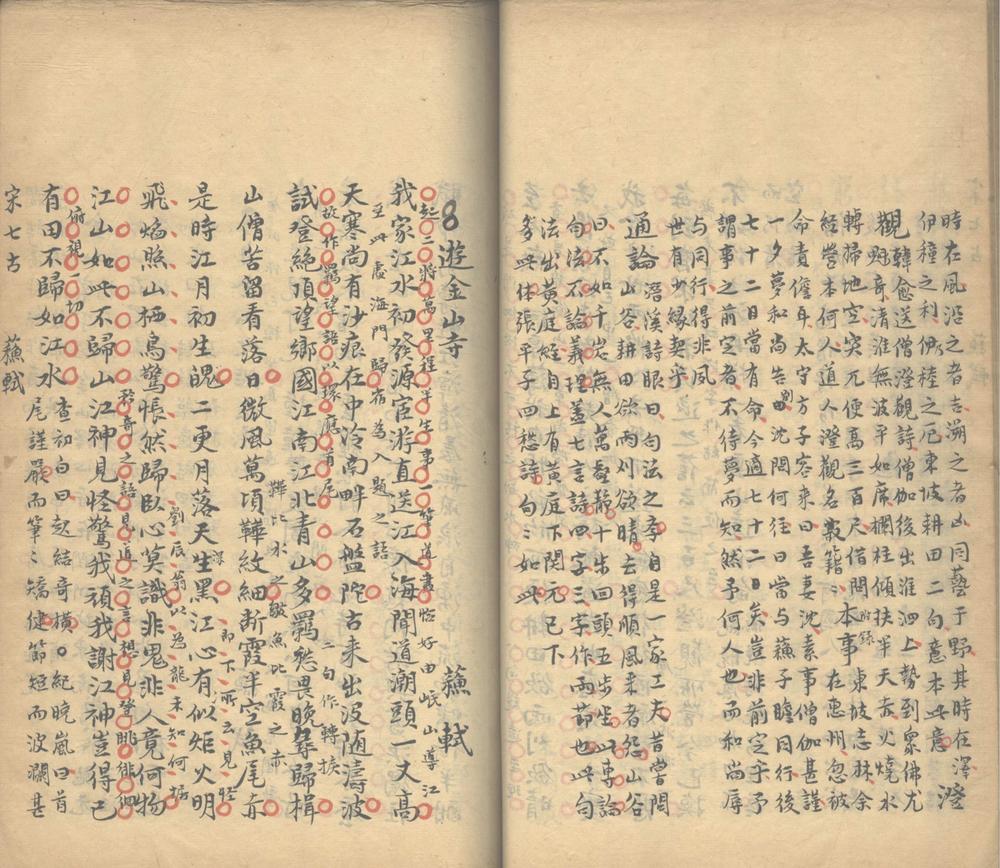 時在風沿之者吉溯之者凶同藝于野其時在澤
伊種之利伊稑之厄東坡耕田二句意本此意 澄
觀韓愈送僧澄觀詩僧伽後出淮泗上勢到衆佛尤
魁奇清淮無波平如席欄柱傾扶半天赤火燒水
轉掃地空突兀便高三百尺借問
經營本何人道人澄觀名籍籍 本事附錄東坡志林余在惠州忽被
命責儋耳太守方子容來曰吾妻沈素事僧伽甚謹
一夕夢和尚告別沈問何往曰當与蘇子瞻同行後
七十二日當有命今適七十二日矣豈非前定乎予
謂事之前定者不待夢而知然予何人也而和尚辱
与同行得非夙
世有少緣契乎
通論浯溪詩眼曰句法之學自是一家工夫昔嘗問
山谷耕田欲雨刈欲晴去得順風來者怨山谷
曰不如千岩無人萬壑靜十步回頭五步坐此專論
句法不論義理蓋七言詩四字三字作兩節也此句
法出黃庭經自上有黃庭下關元已下
多此体張平子四愁詩句句如此
8遊金山寺 蘇軾
起二將萬里程半生事一筆道盡恰好由岷山導江
至此處海門歸宿為入題之語
我家江水初發源宦游直送江入海聞道潮頭一丈高
天寒尚有沙痕在中泠南畔石盤陀古來出沒隨濤波
故作羈望語以環應首尾 二句作轉捩
試登絕頂望鄉國江南江北青山多羈愁畏晚尋歸楫
鞾比水之皺魚比霞之赤
山僧苦留看落日微風萬頃鞾紋細斷霞半空魚尾赤
是時江月初生魄二更月落天深黑江心有似炬火明
劉辰翁以為龍未知何据 即下所云見怪
飛焰照山栖鳥驚悵然歸臥心莫識非鬼非人竟何物
務奇之語見道之言想見登眺徘徊
江山如此不歸山江神見怪驚我頑我謝江神豈得已
俯視一切
有田不歸如江水查初白曰起結奇橫。紀曉嵐曰首
尾謹嚴而筆筆矯健節短而波瀾甚
宋七古 蘇軾